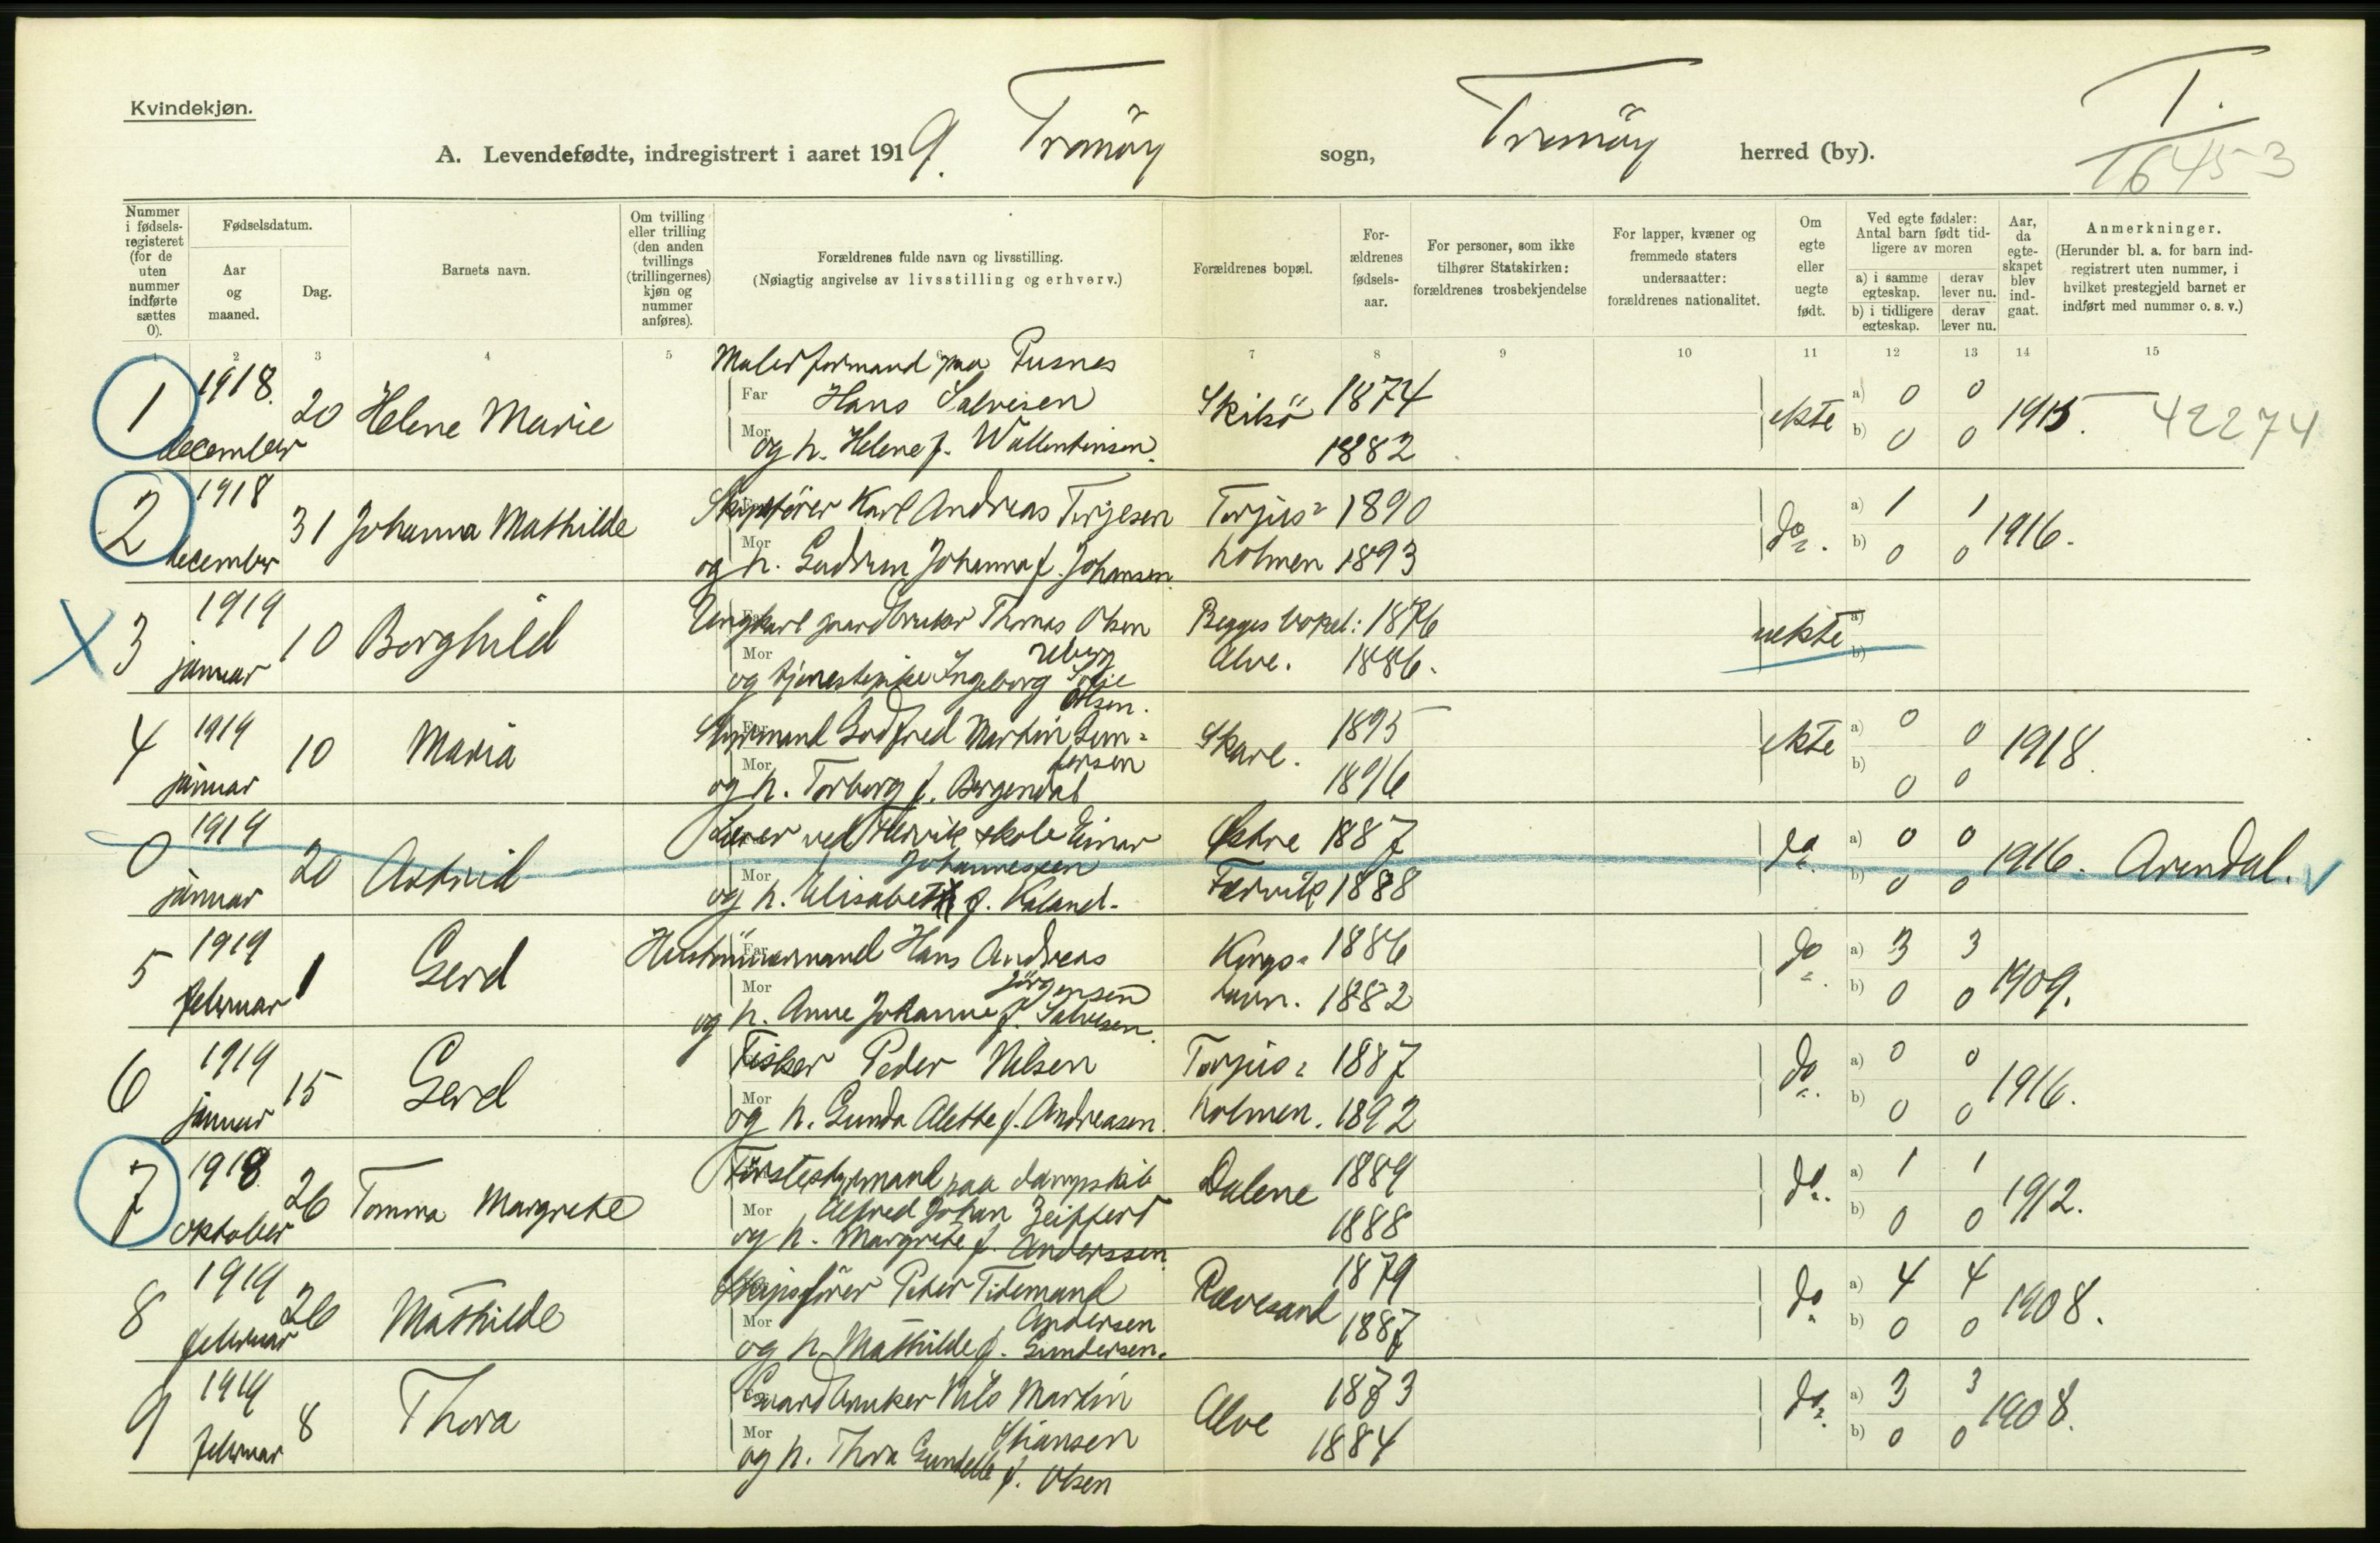 Kvindekjøn.
A. Levendefødte, indregistrert i aaret 1919. Tromöy sogn, Tromöy herred (by).
1.
1645 3
Nummer i fødsels-registeret (for de uten nummer indførte sættes 0).
Fødselsdatum.
Aar og maaned.
Dag.
Barnets navn.
Om tvilling eller trilling (den anden tvillings (trillingernes) kjøn og nummer anføres).
Forældrenes fulde navn og livsstilling.
(Nøiagtig angivelse av livsstilling og erhverv.)
Forældrenes bopæl.
For-ældrenes fødsels-aar.
For personer, som ikke tilhører Statskirken: forældrenes trosbekjendelse
For lapper, kvæner og fremmede staters undersaatter: forældrenes nationalitet.
Om egte eller uegte født.
Ved egte fødsler: Antal barn født tid-ligere av moren
a) i samme egteskap.
derav lever nu.
b) i tidligere egteskap.
derav lever nu.
Aar, da egte-skapet blev ind-gaat.
Anmerkninger.
(Herunder bl. a. for barn ind-registrert uten nummer, i hvilket prestegjeld barnet er indført med nummer o. s. v.)
1 2 3 4 5 6 7 8 9 10 11 12 13 14 15
Malerformand paa Pusnes
1 1918. december 20 Helene Marie
Far Hans Salvesen Skilsö 1874 ekte a) 0 0 1915. 42274
Mor og h. Helene f. Wallentinsen. 1882 b) 0 0
2 1918 december 31 Johanna Mathilde
Skipsförer Karl Andreas Terjesen Torjus= 1890 do. a) 1 1 1916.
Mor og h. Gudrun Johanna f. Johansen. holmen 1893 b) 0 0
3 1919 januar 10 Borghild
Ungkarl gaardbruker Thomas Olsen Begges bopel: 1876 uekte a)
Mor og tjenestepike Ingeborg Sofie Olsen. Alve. 1886. b)
4 1919 januar 10 Maria
Styrmand Godfred Martin Gun= dersen Skare. 1895 ekte a) 0 0 1918.
Mor og h. Torborg f. Bergendal 1896 b) 0 0
0 1919 januar 20 Astrid
Lærer ved Færvik skole Einar Johannessen Östre 1887 do. a) 0 0 1916. Arendal.
Mor og h. Elisabeth f. Kaland. Færvik 1888 b) 0 0
5 1919 februar 1 Gerd
Hustömmermand Hans Andreas Jörgensen Kongs= 1886 do. a) 3 3 1909.
Mor og h. Anne Johanne f. Salvesen. havn. 1882 b) 0 0
6 1919 januar 15 Gerd
Fisker Peder Nilsen Torjus= 1887 do. a) 0 0 1916.
Mor og h. Gunda Alette f. Andreasen. holmen. 1892 b) 0 0
7 1918 oktober 26 Tomma Margrete
Förstestyrmand paa dampskib Dalene 1889 do. a) 1 1 1912.
Mor Alfred Johan Zeiffert
og h. Margrete f. Anderssen. 1888 b) 0 0
8 1919 februar 26 Mathilde
Skipsförer Peter Tidemand Andersen Rævesand 1879 do a) 4 4 1908.
Mor og h. Mathilde f. Gundersen. 1887 b) 0 0
9 1919 februar 8 Thora
Gaardbruker Nils Martin Alve 1873 do. a) 3 3 1908.
Mor og h. Thora Gundelle f. Olsen 1884 b) 0 0